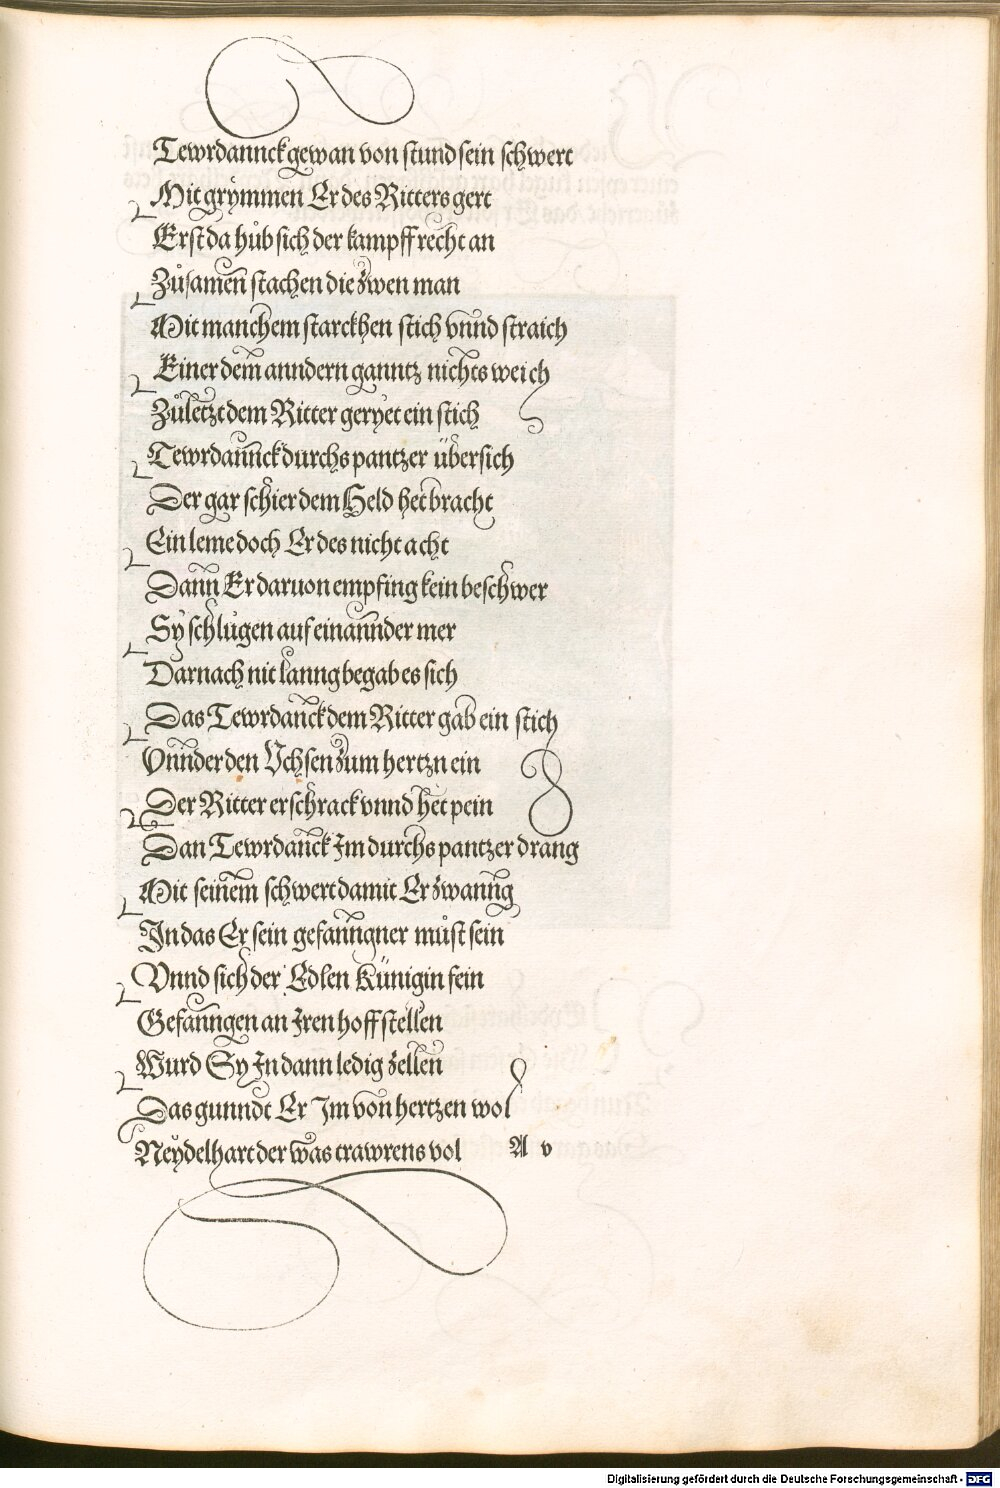 Tewrdannck gewan von stund sein schwert
Mit grymmen Er des Ritters gert
Erst da hůb sich der kampff recht an
Zůsamen stachen die zwen man
Mit manchem starckhen stich vnnd straich
Einer dem anndern ganntz nichts weich
Zůletzt dem Ritter geryet ein stich
Tewrdannck durchs pantzer übersich
Der gar schier dem Held het bracht
Ein leme doch Er des nicht acht
Dann Er daruon empfing kein beschwer
Sÿ schlůgen auf einannder mer
Darnach nit lanng begab es sich
Das Tewrdanck dem Ritter gab ein stich
Vnnder den Vchsen zum hertzn ein
Der Ritter erschrack vnnd het pein
Dan Tewrdanck Im durchs pantzer drang
Mit seinem schwert damit Er zwanng
In das Er sein gefanngner můst sein
Vnnd sich der Edlen Künigin fein
Gefanngen an Iren hoff stellen
Wurd Sy In dann ledig zellen
Das gunndt Er Im von hertzen wol
Neÿdelhart der was trawrens vol A v
Digitalisierung gefördert durch die Deutsche Forschungsgemeinschaft - DFG